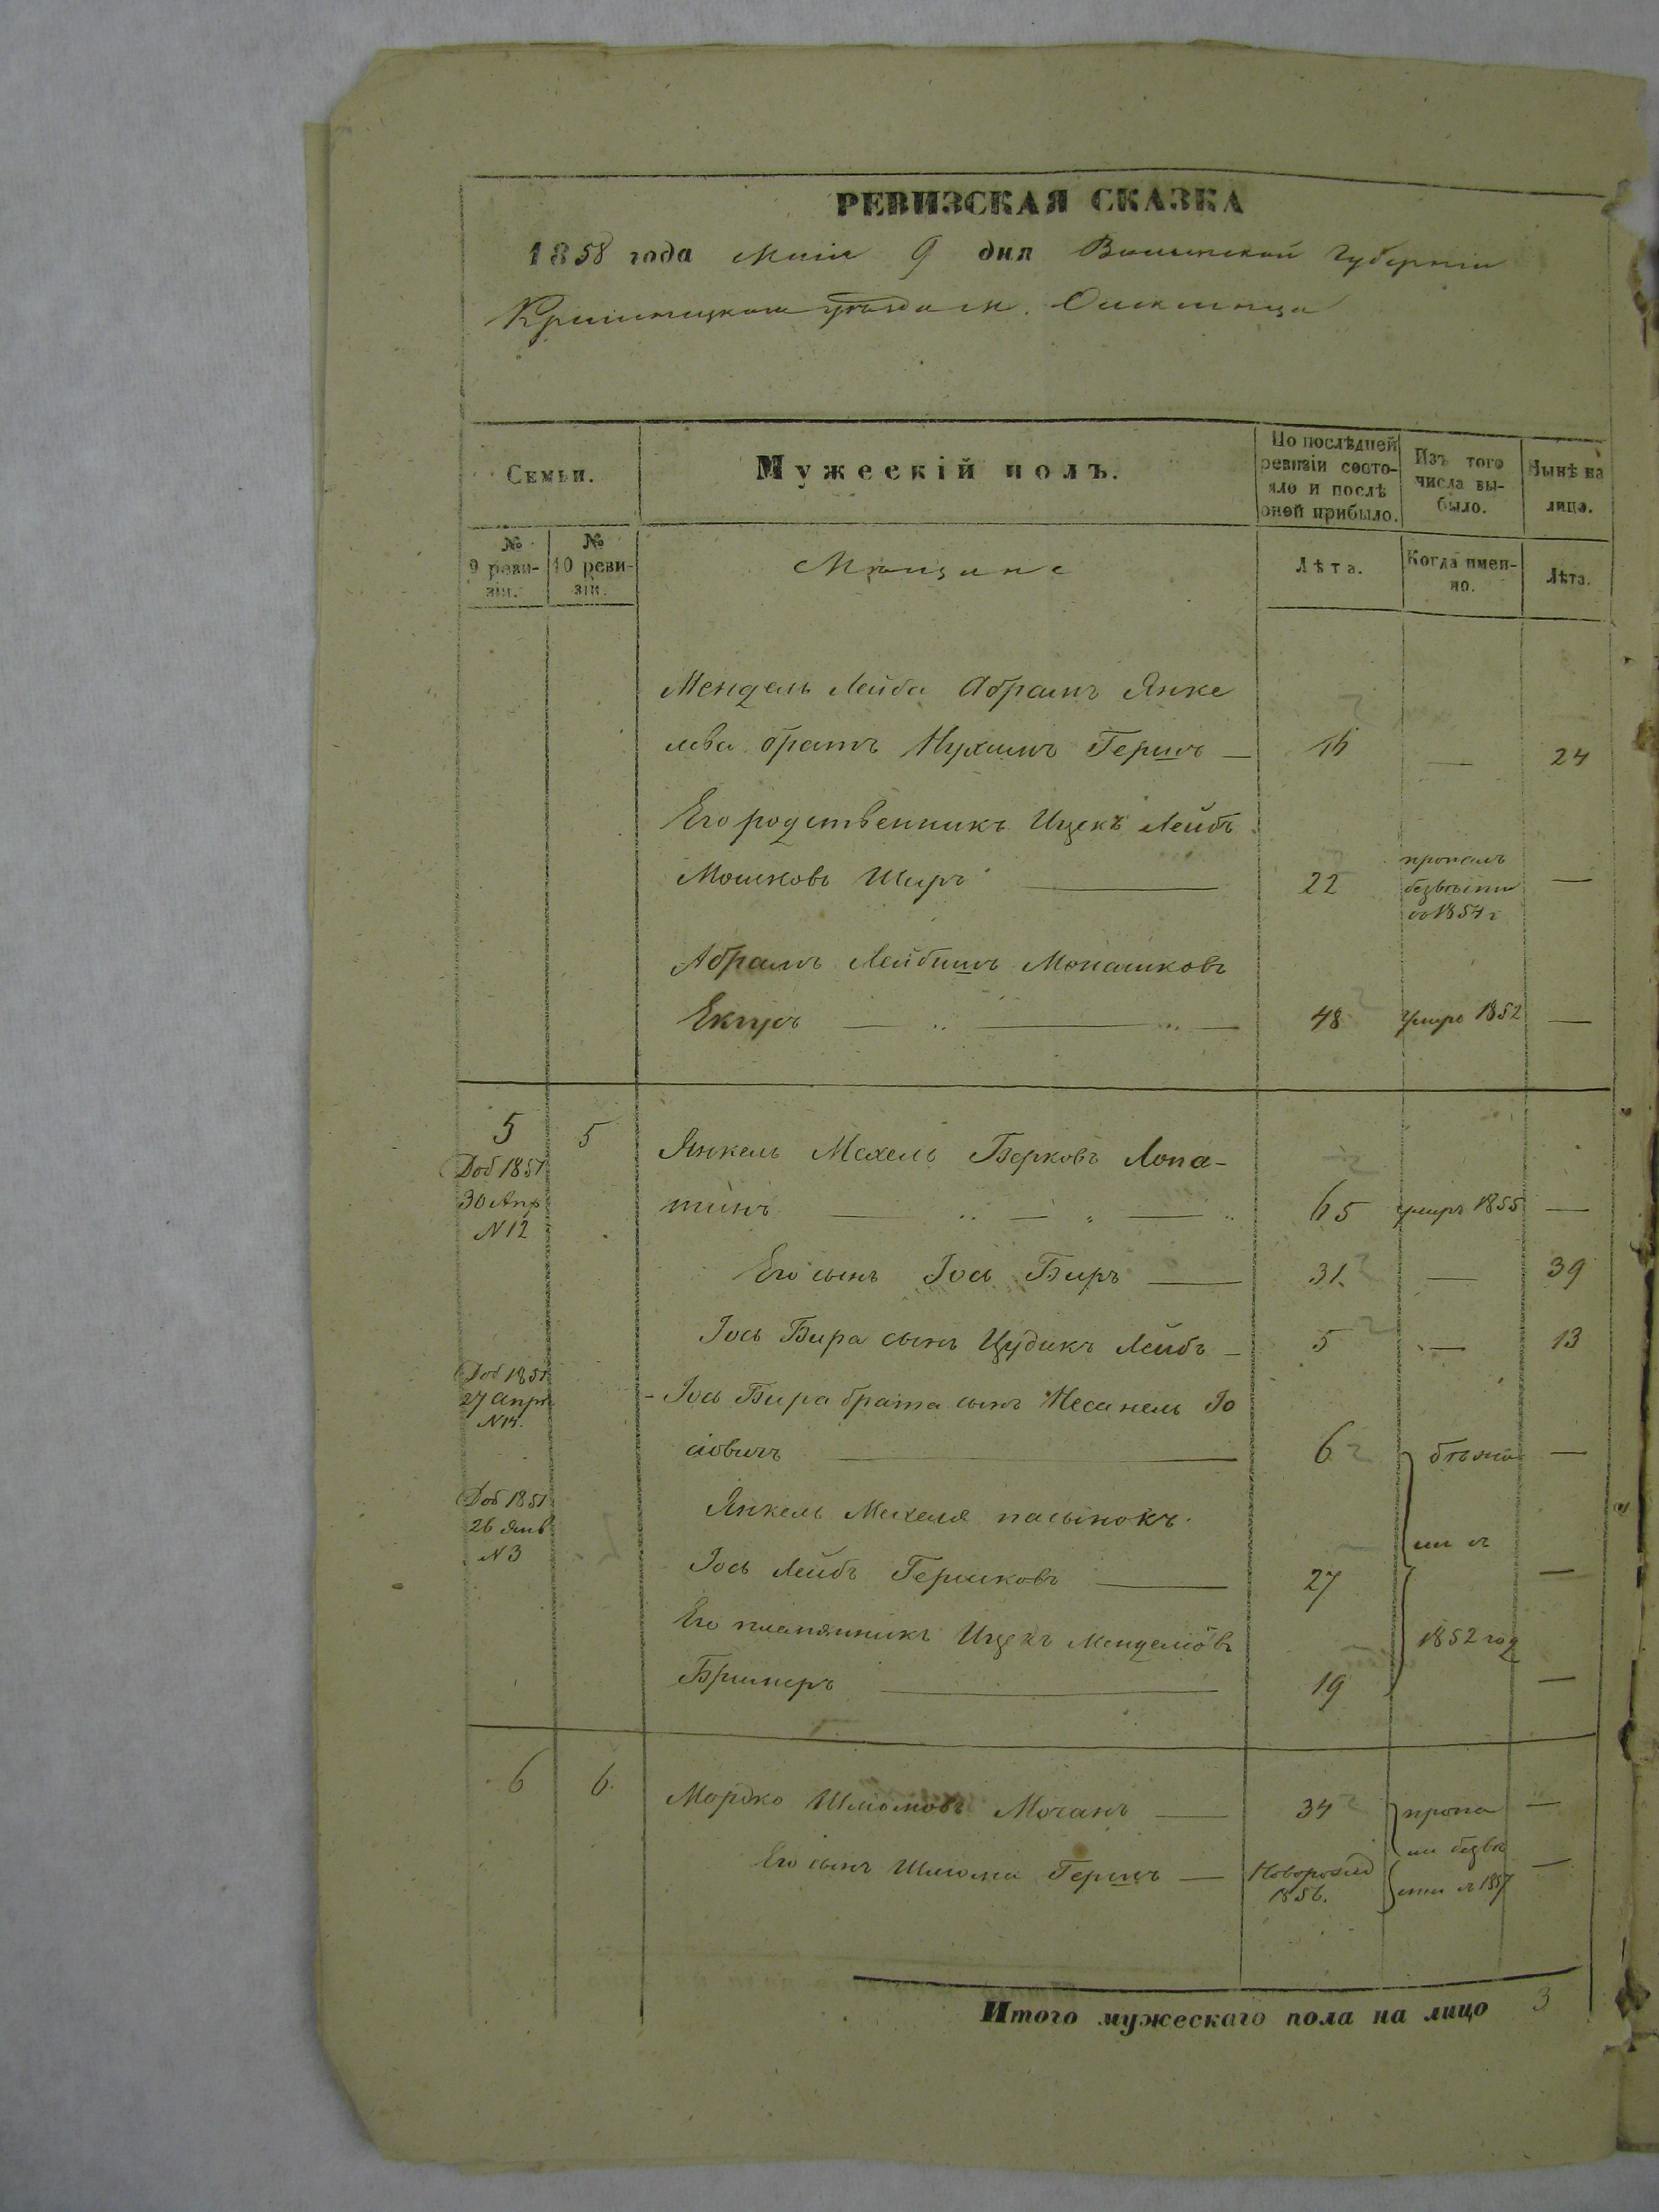 РЕВИЗСКАЯ СКАЗКА
1858 года Маія 9 дня Волынской Губерніи
Кременецкаго уѣзда м.
Семьи.
Мужескій полъ.
По послѣдней ревизіи состояло и послѣ оной прибыло.
Изъ того числа выбыло.
Нынѣ на лицо.
№ 9 ревизіи.
№ 10 ревизіи.
Мѣщане
Лѣта.
Когда именно.
Лѣта.
Мендель Лейба Абрамъ Янке
лева братъ Нухимъ Гершъ — 16 — 24
Его родственникъ Ицекъ Лейбъ
МошковъШиръ — 22 пропалъ безвѣсти въ 1854 г —
Абрамъ Лейбишъ Монашковъ
48 Умеръ 1852 —
5 5 Янкель Мехель Берковъ Лопа-
Доб 1851 30 Апр N 12
тинъ — 65 умеръ 1855 —
Его сынъ Іось Биръ — 31. — 39
Іось Бира сынъ Цудикъ Лейбъ — 5 — 13
Доб 1851 27 Апрѣ N 14.
- Іось Бира брата сынъ Несанель Іо
сіовичъ — 6 бѣжа —
Доб 1851 26 Янв N 3
Янкель Мехеля пасынокъ
ли въ
Іось Лейбъ Гершковъ — 27 —
Его племянникъ Ицекъ Менделіовъ
1852 год
19 —
6 6. Мордко Шліомовъ Мочанъ — 34 пропа —
Его сынъ Шліома Гершъ — Новорожд 1856. ли безвѣ сти въ 1857 —
Итого мужескаго пола на лицо 3